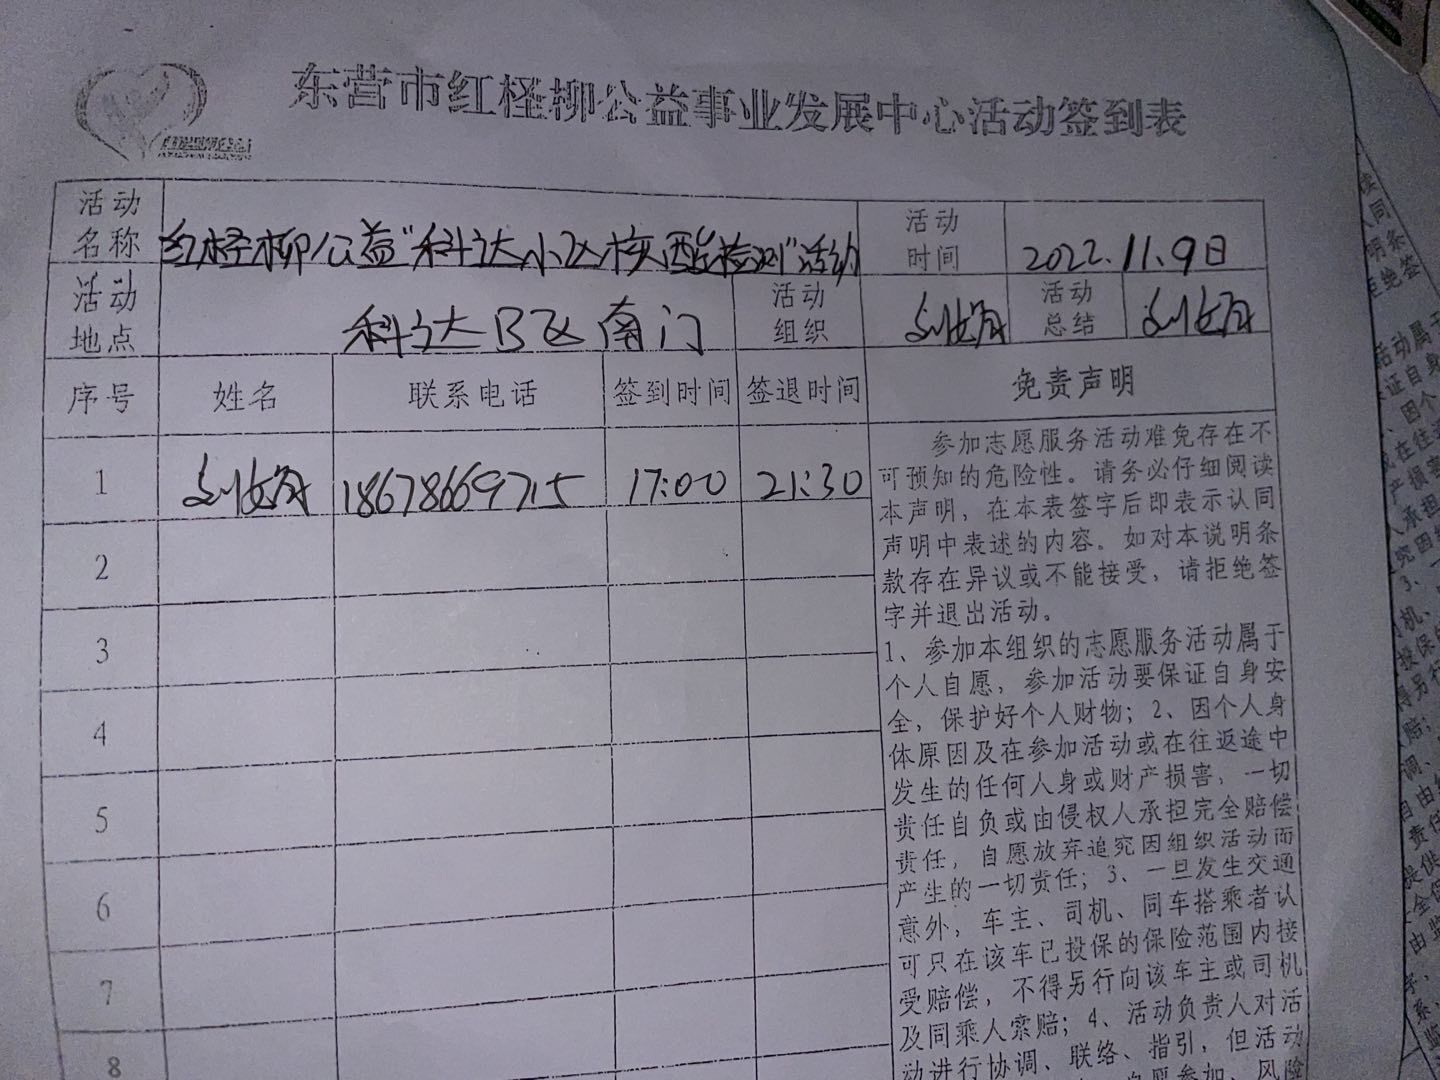 东营市红柽柳公益事业发展中心活动签到表
活动名称 红柽柳公益“科达小区核酸检测”活动 活动时间 2022.11.9日
活动地点 科达B区南门 活动组织 活动总结
序号 姓名 联系电话 签到时间 签退时间 免责声明
1 18678669715 17:00 21:30
2
3
4
5
6
7
8
参加志愿服务活动难免存在不
可预知的危险性。请务必仔细阅读
本声明，在本表签字后即表示认同
声明中表述的内容。如对本说明条
款存在异议或不能接受，请拒绝签
字并退出活动。
1、参加本组织的志愿服务活动属于
个人自愿，参加活动要保证自身安
全，保护好个人财物；2、因个人身
体原因及在参加活动或在往返途中
发生的任何人身或财产损害，一切
责任自负或由侵权人承担完全赔偿
责任，自愿放弃追究因组织活动而
产生的一切责任；3、一旦发生交通
意外，车主、司机、同车搭乘者认
可只在该车已投保的保险范围内接
受赔偿，不得另行向该车主或司机
及同乘人索赔；4、活动负责人对活
动进行协调、联络、指引，但活动